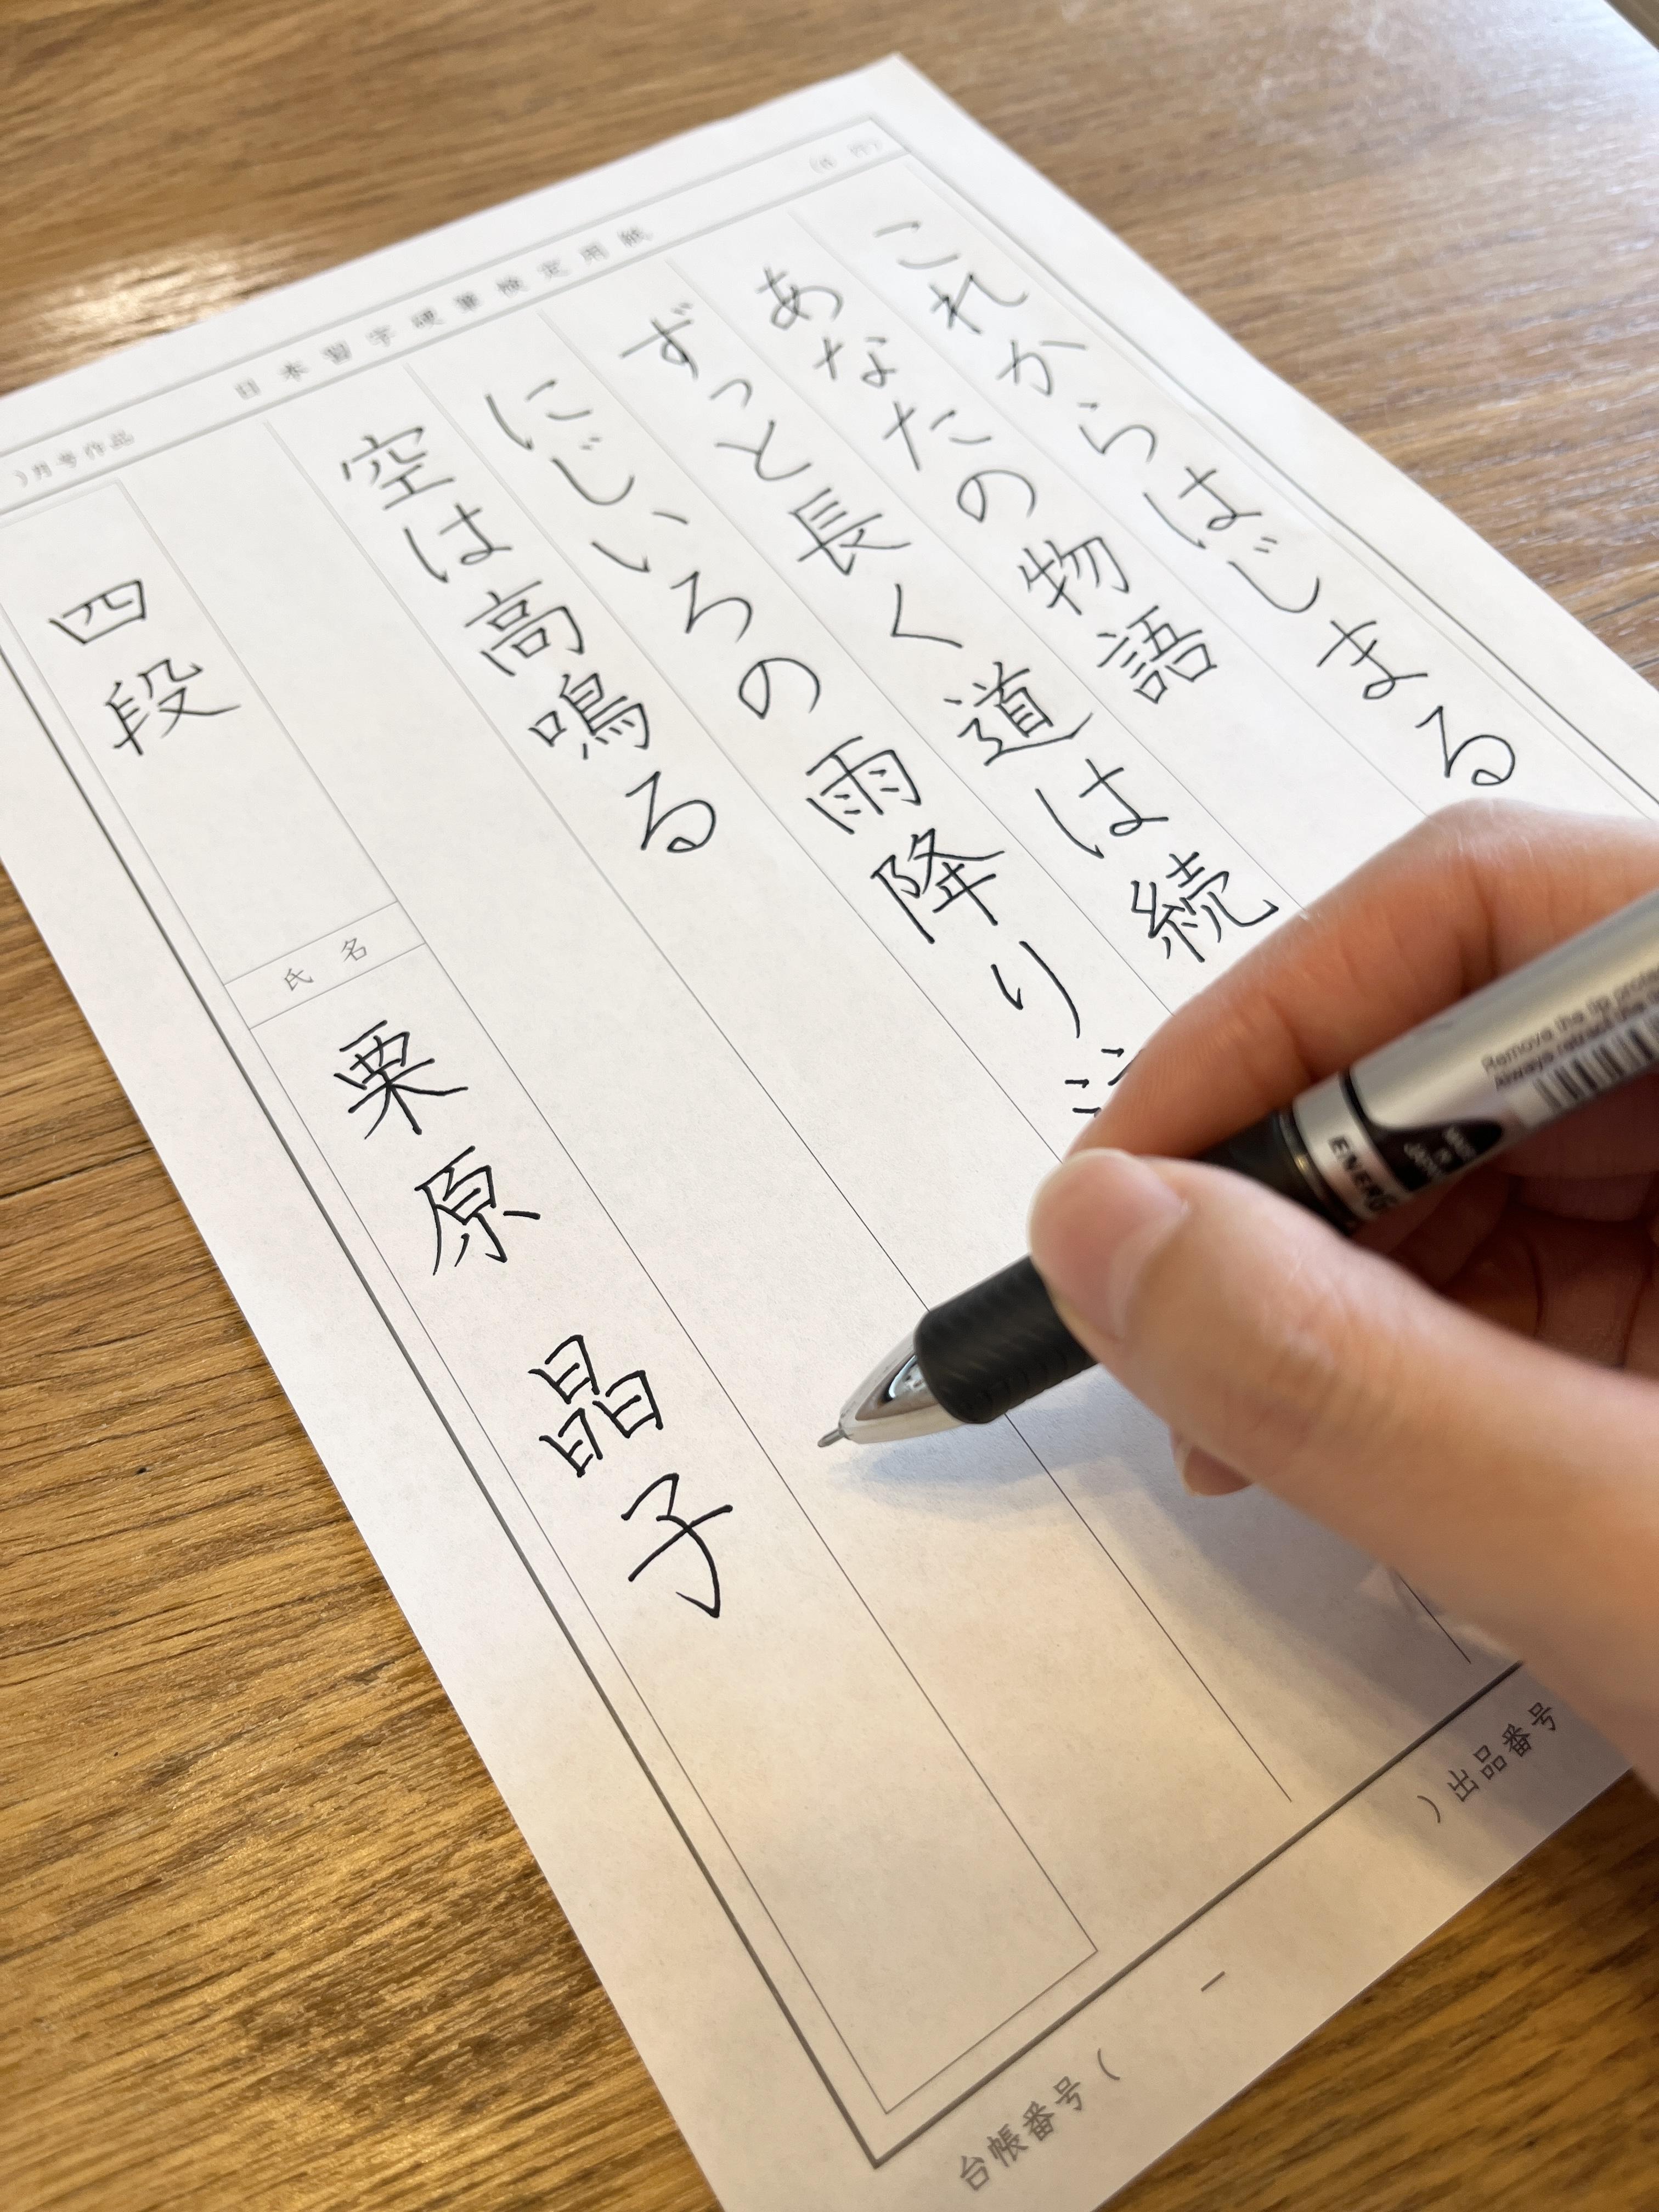 日本習字硬筆検定用紙
これからはじまる
あなたの物語
ずっと長く道は続
にじいろの雨降り
空は高鳴る
)月号作品
四段
氏名
栗原 晶子
)出品番号
台帳番号(
ー
Remove the tip prote
Always retract the
ENERG
MADE IN JAPAN